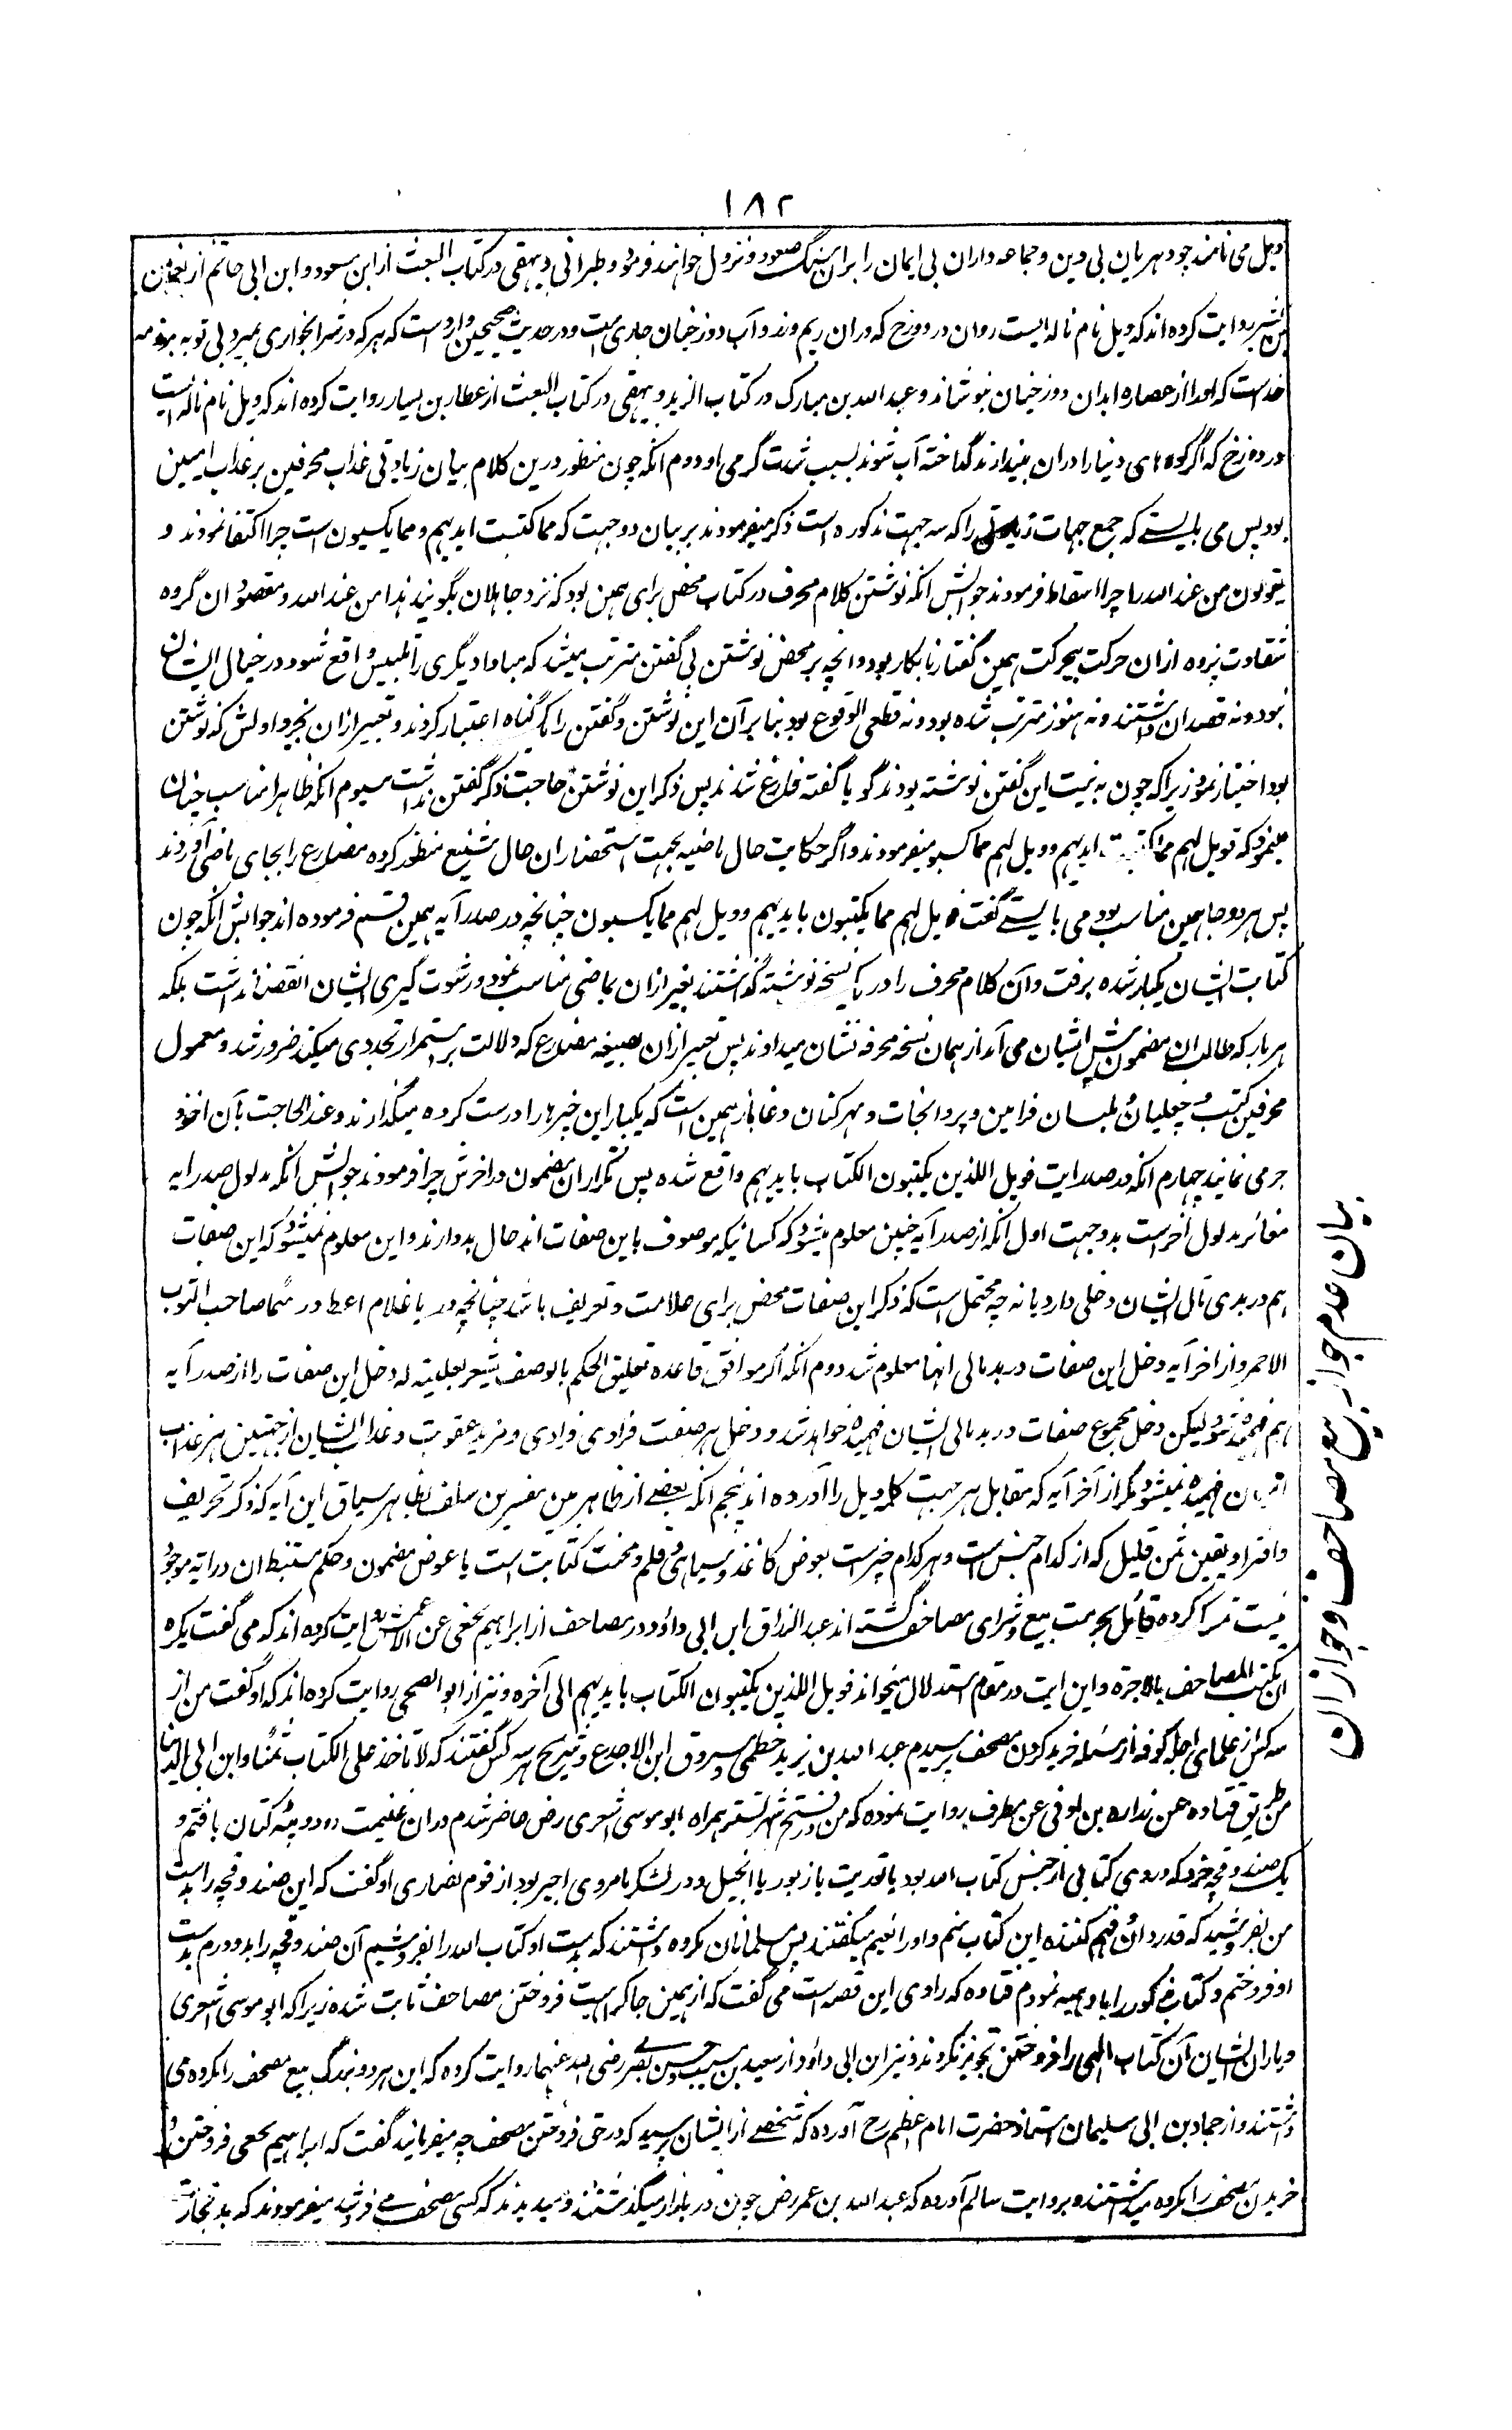 ۱۸۲
ویل می نامند چو دهریان بی دین و جماعه داران بی ایمان را بران سنگ صعود و نزول خواهند فرمود و طبرانی و بیهقی در کتاب البعث از ابن مسعود و ابن ابی حاتم از نعمان
بن بشیر روایت کرده اند که ویل نام ناله ایست روان در دوزخ که دران ریم و زرد آب دوزخیان جاری ست و در حدیث صحیحین وارد ست که هر که در شرابخواری بمیرد بی توبه بر ذمه
خداست که او را از عصاره ابدان دوزخیان بنوشاند و عبد الله بن مبارک در کتاب الزهد و بیهقی در کتاب البعث از عطار بن یسار روایت کرده اند که ویل نام ناله ایست
در دوزخ که اگر کوه های دنیا را دران بیندازند گداخته آب شوند بسبب شدت گرمی او دوم انکه چون منظور درین کلام بیان زیادتی عذاب محرفین بر عذاب امیین
بود پس می بایستے که جمیع جهات زیادتی را که سه جهت مذکوره است ذکر میفرمودند بر بیان دو جهت که مما کتبت ایدیهم و مما یکسبون است چرا اکتفا نمودند و
یقولون من عند الله را چرا اسقاط فرمودند جوابش انکه نوشتن کلام محرف در کتاب محض برای همین بود که نزد جاهلان بگویند هذا من عند الله و مقصود ان گروه
شقاوت پژوه ازان حرکت بیبرکت همین گفتار نابکار بود و انچه بر محض نوشتن بی گفتن مترتب میشد که مبادا دیگری را تلبیس واقع شود در خیال ایشان
نبود و نه قصد ان داشتند و نه هنوز مترتب شده بود و نه قطعی الوقوع بود بنا بر آن این نوشتن و گفتن را یک گناه اعتبار کردند و تعبیر ازان بجزو اولش که نوشتن
بود اختیار نمود زیرا که چون به نیت این گفتن نوشته بودند گویا گفته فارغ شدند پس ذکر این نوشتن حاجت ذکر گفتن نداشت سیوم انکه ظاهرا مناسب چنان
مینمود که فویل لهم مما کتبت ایدیهم و ویل لهم مما کسبو میفرمودند و اگر حکایت حال ماضیه بجهت استحضار ان حال شنیع منظور کرده مضارع را بجای ماضی آوردند
پس هر دو جا همین مناسب بود می بایستے گفت فویل لهم مما یکتبون بایدیهم و ویل لهم مما یکسبون چنانچه در صدر آیه همین قسم فرموده اند جوابش انکه چون
کتابت ایشان یکبار شده برفت و آن کلام محرف را در یک نسخه نوشته گذاشتند تعبیر ازان بماضی مناسب نمود و رشوت گیری ایشان انقضا نداشت بلکه
هر بار که طالب ان مضمون پیش ایشان می آمد از همان نسخه محرفه نشان میدادند پس تعبیر ازان بصیغه مضارع که دلالت بر استمرار تجددی میکند ضرور شد و معمول
محرفین کتب و جعلیان و ملبسان فرامین و پروانجات و مهرکنان دغاباز همین است که یکبار این چیزها را درست کرده میگذارند و عند الحاجت بآن اخذ و
جر می نمایند چهارم انکه در صدر ایت فویل للذین یکتبون الکتاب بایدیهم واقع شده پس تکرار ان مضمون در اخرش چرا فرمودند جوابش انکه مدلول صدر ایه
مغائر مدلول اخر است بدو جهت اول انکه از صدر آیه چنین معلوم میشود که کسانیکه موصوف باین صفات اند حال بد دارند و این معلوم نمیشود که این صفات
هم در بدی مال ایشان دخلی دارد یا نه چه محتمل است که ذکر این صفات محض برای علامت و تعریف باشد چنانچه در یا غلام اعط درهما صاحب الثوب
الاحمر و از اخر آیه دخل این صفات در بد مالی انها معلوم شد دوم انکه اگر موافق قاعده تعلیق الحکم بالوصف یشعر بعلیته له دخل این صفات را از صدر آیه
هم فهمیده شود لیکن دخل مجموع صفات در بد مالی ایشان فهمیده خواهد شد و دخل هر صفت فرادی فرادی و مزید عقوبت و عذاب ایشان از جهتین هر عذاب
فهمیده نمیشود مگر از آخر آیه که مقابل هر جهت کلمه ویل را آورده اند پنجم انکه بعضے از ظاهر بین مفسرین سلف بظاهر سیاق این آیه که ذکر تحریف
و افترا و یقین ثمن قلیل که از کدام جنس است و هر کدام چیز است بعوض کاغذ و سیاهی و قلم و محنت کتابت است یا عوض مضمون و حکم مستنبط ان در ایه موجود
نیست تمسک کرده قائل بحرمت بیع و شرای مصاحف گشته اند عبد الرزاق ابن ابی داؤد در مصاحف از ابراهیم نخعی عن الاعمش روایت کرده اند که می گفت یکره
ان یکتب المصاحف بالاجرة و این ایت در مقام استدلال میخواند فویل للذین یکتبون الکتاب بایدیهم الی آخره و نیز از ابو الضحی روایت کرده اند که او گفت من از
سه کس از علمای اجله کوفه از مسئله خرید کردن مصحف پرسیدم عبد الله بن یزید خطمی و مسروق ابن الاجدع و شریح هر سه کس گفتند که لا تاخذ علی الکتاب ثمنا و ابن ابی الدنیا
من طریق قتاده عن زراره بن اوفی عن مطرف روایت نموده که من در فتح شهر تستر همراه ابو موسی اشعری رض حاضر شدم دران غنیمت دو دوپٹه کتان یافتم و
یک صندوقچه خرد که دروی کتابی از جنس کتاب الله بود یا توریت یا زبور یا انجیل و در لشکر ما مروی اجیر بود از قوم نصاری او گفت که این صندوقچه را بدست
من بفروشید که قدردان و فهم کننده این کتاب منم و او را نعیم میگفتند پس مسلمانان مکروه داشتند که بدست او کتاب الله را بفروشیم آن صندوقچه را بدو درم بدست
او فروختم و کتاب مذکور را باو هبه نمودم قتاده که راوی این قصه است می گفت که از همین جا کراهیت فروختن مصاحف ثابت شده زیرا که ابو موسی اشعری
و یاران ایشان آن کتاب الهی را فروختن تجویز نکردند و نیز ابن ابی داؤد از سعید بن مسیب و حسن بصری رضی الله عنهما روایت کرده که این هر دو بزرگ بیع مصحف را مکروه می
داشتند و از حماد بن ابی سلیمان استاد حضرت امام اعظم رح آورده که شخصے از ایشان پرسید که در حق فروختن مصحف چه میفرمایند گفت که ابراهیم نخعی فروختن و
خریدن مصحف را مکروه میداشتند و بروایت سالم آورده که عبد الله بن عمر رض چون در بازار میگذشتند و میدیدند که کسی مصحف می فروشد میفرمودند که بد تجارت
بیان عدم جواز بیع مصاحف و جواز ان